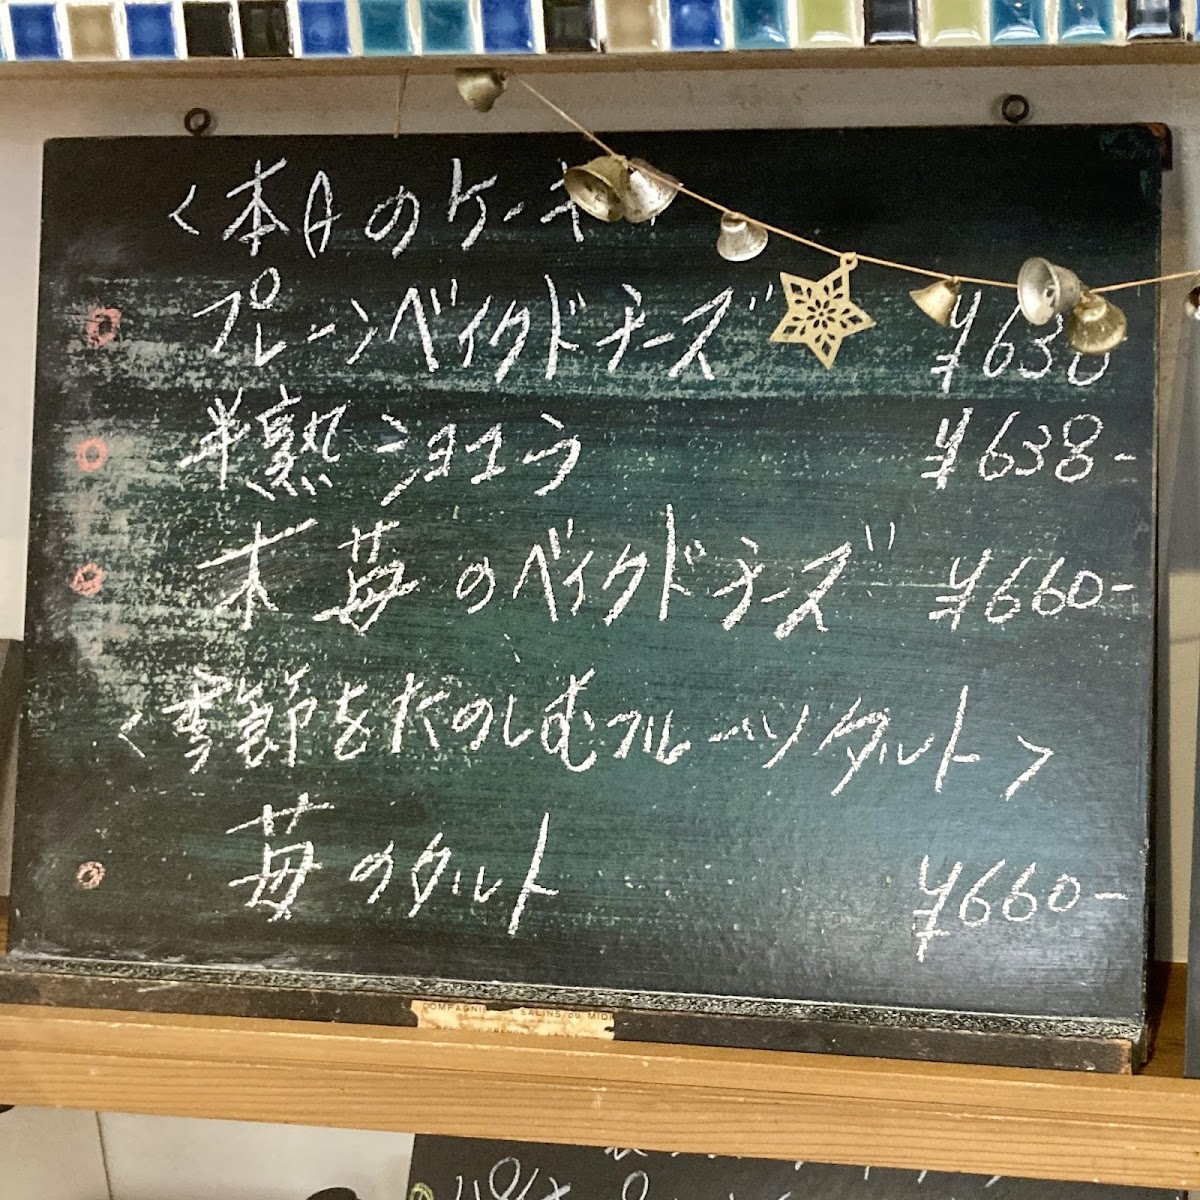 <本日のケーキ
プレーンベイクドチーズ ¥630
半熟ショコラ ¥638-
木苺のベイクドチーズ ¥660-
<季節をたのしむフルーツタルト>
苺のタルト ¥660-
COMPAGNIE SALINS DU MIDI